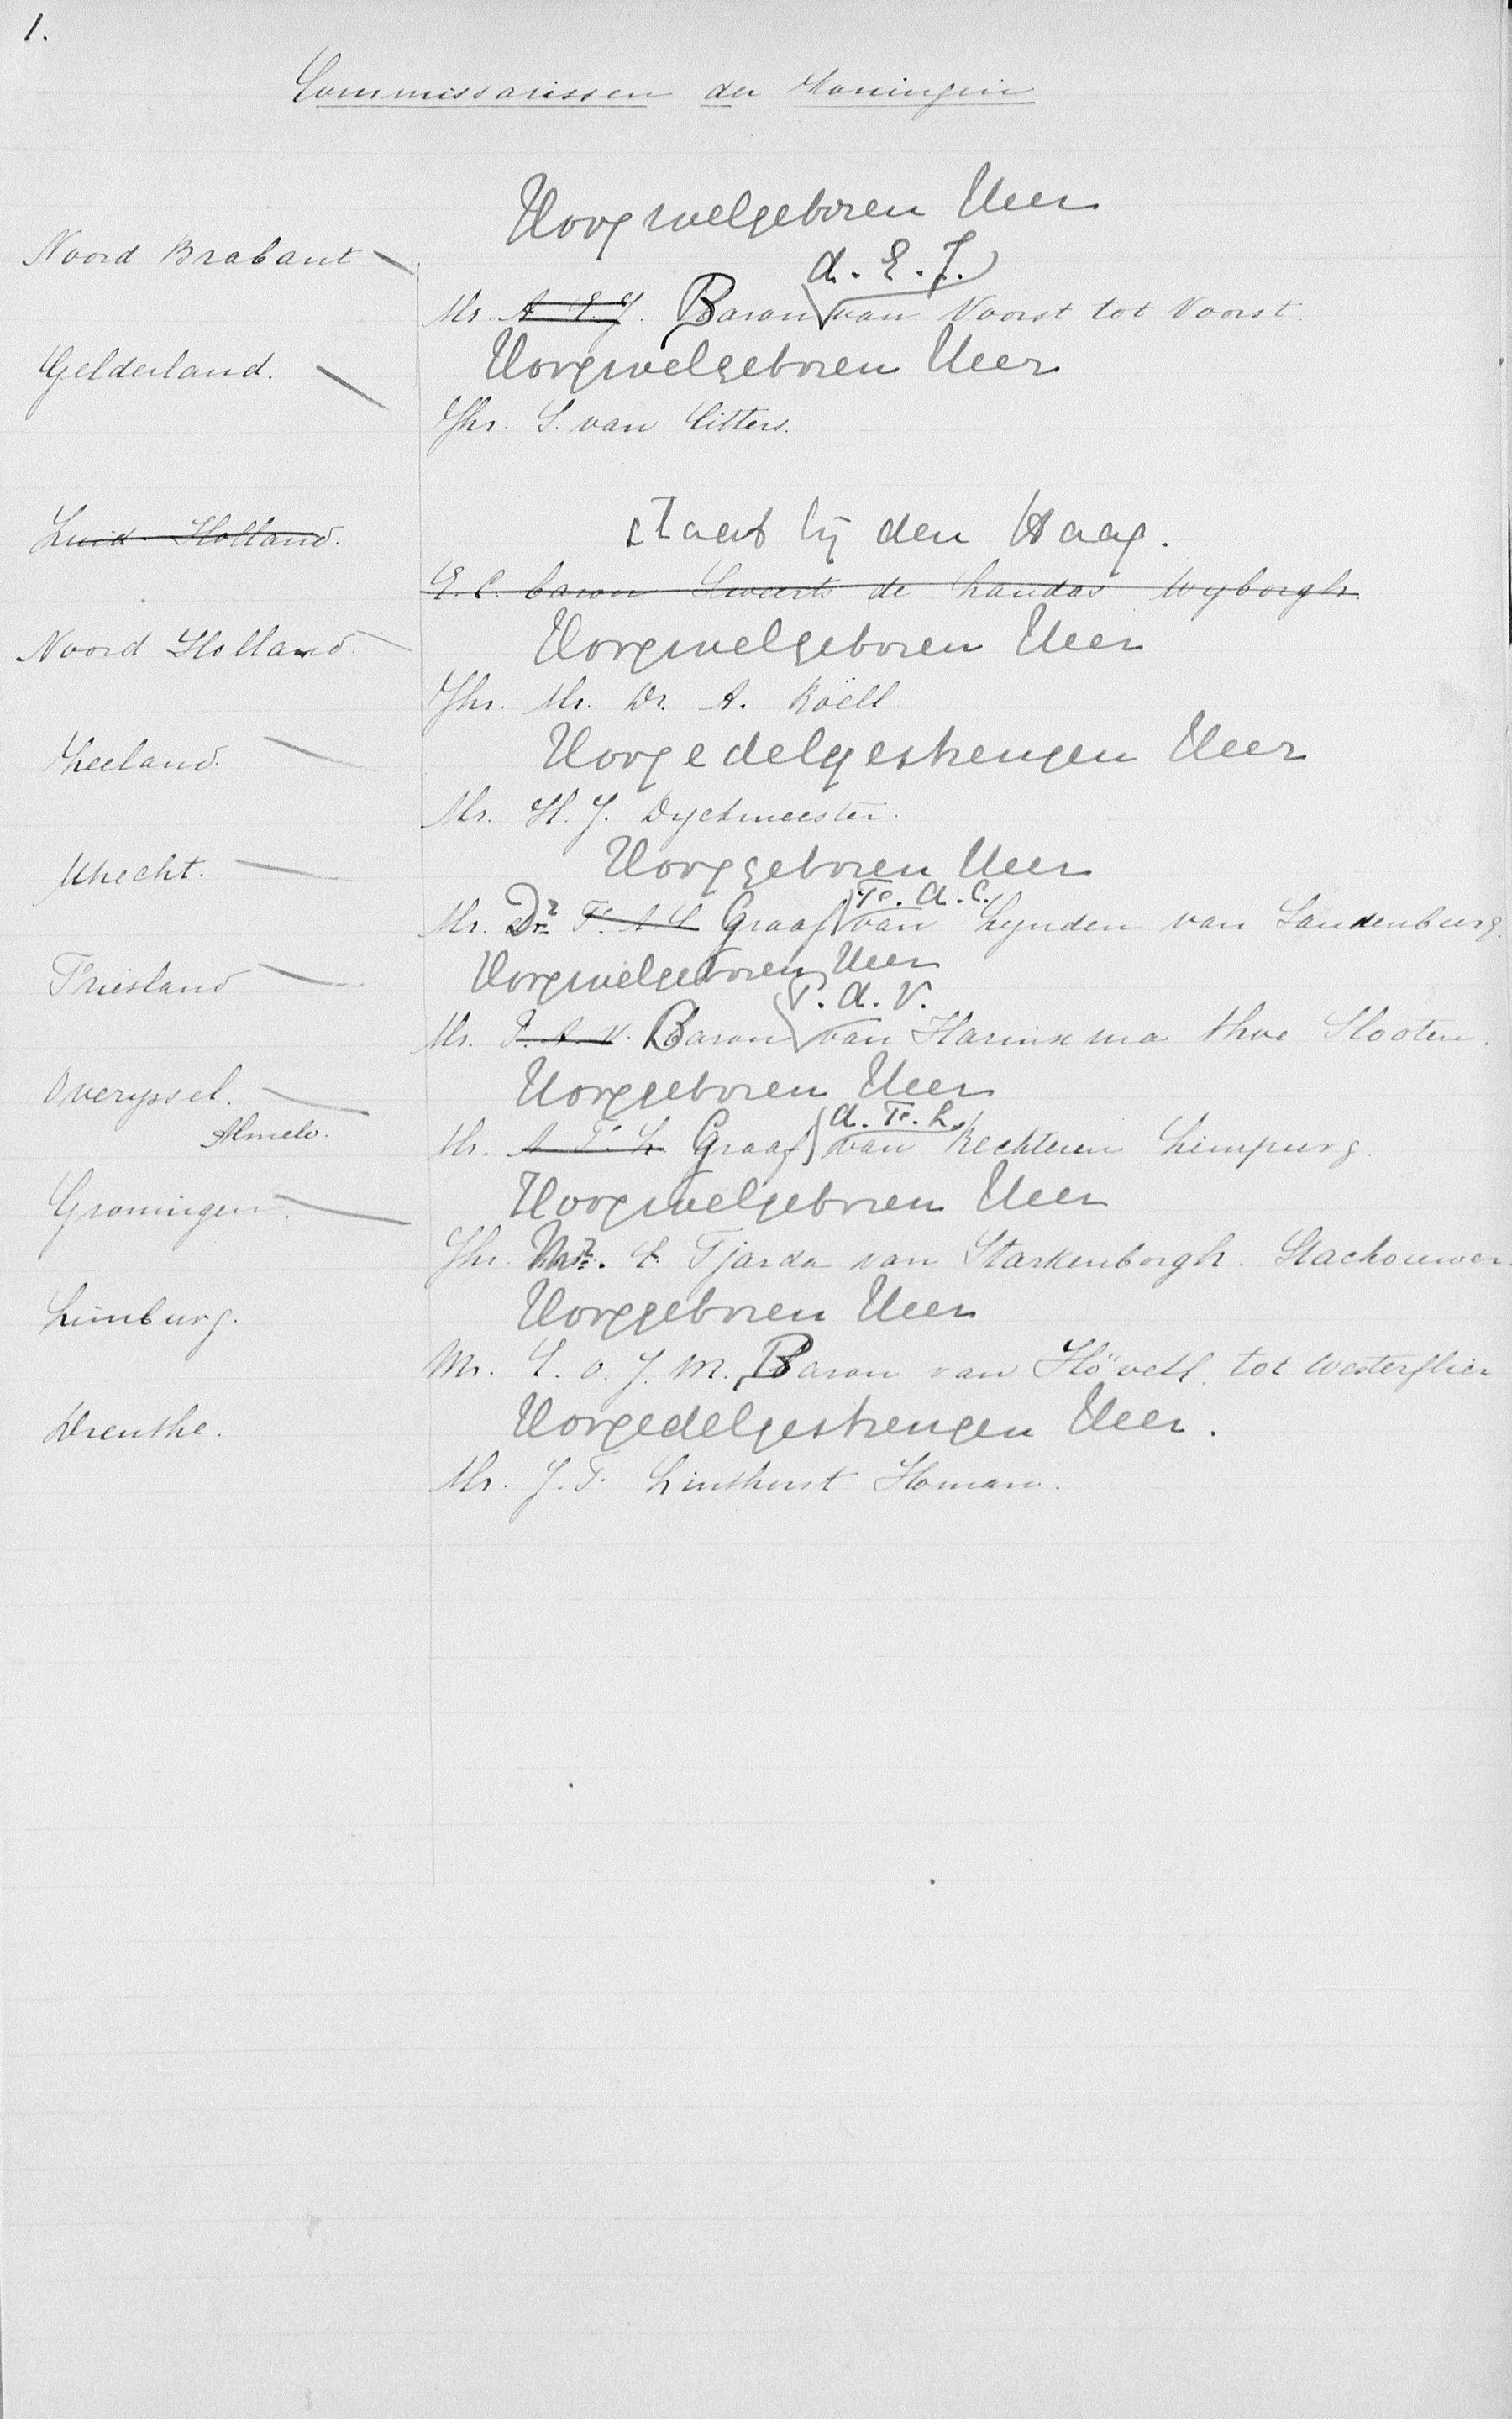 1.
Commissarissen der Koningin
Hoogwelgeboren Heer
Noord Brabant
A. E. J.
Mr. A E J. Baron van Voorst tot Voorst.
Gelderland.
Hoogwelgeboren Heer
Jhr. S. van Citters.
Zuid Holland.
staat bij den Haag.
E. C. baron Sweerts de Landas Wyborgh
Noord Holland.
Hoogwelgeboren Heer
Jhr. Mr. Dr. A. Röell
Zeeland.
Hoogedelgestrengen Heer
Mr. H. J. Dyckmeester.
Utrecht.
Hooggeboren Heer
F. A. C.
Mr. Dr. F. A C Graaf van Lynden van Sandenburg.
Friesland
Hoogwelgeboren Heer
P. A. V.
Mr. P. A. V. Baron van Harinxma thoe Slooten.
Overyssel.
Hooggeboren Heer
Almelo.
A. F. L.
Mr. A F. L Graaf van Rechteren Limpurg.
Groningen.
Hoogwelgeboren Heer
Jhr. Mr. E. Tjarda van Starkenborgh. Stachouwer.
Limburg.
Hooggeboren Heer
Mr. E. O. J. M. Baron van Hövell tot Westerflier
Drenthe.
Hoogedelgestrengen Heer.
Mr. J. T. Linthorst Homan.